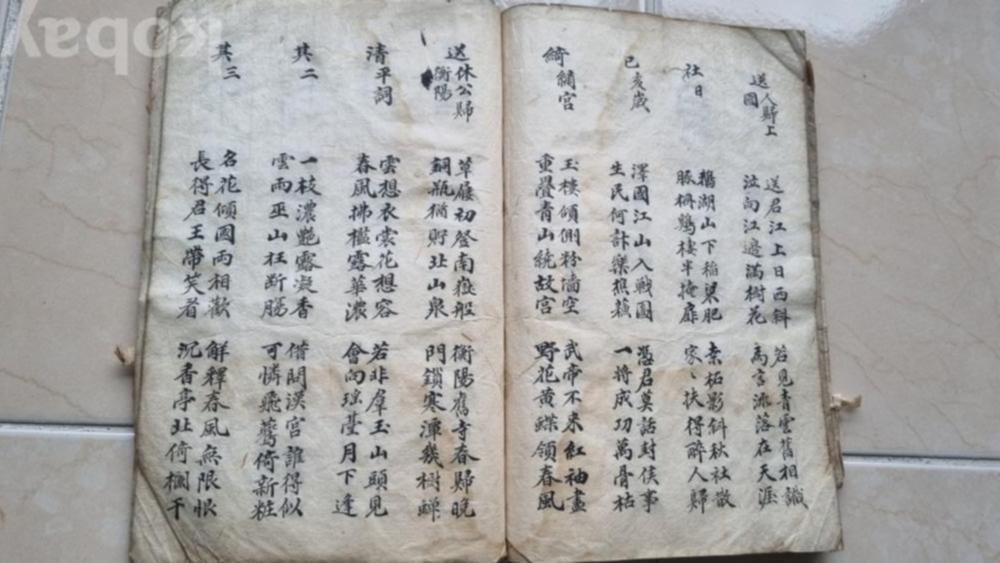 送人歸上
國
送君江上日西斜
泣向江邊滿樹花
若見青雲舊相識
為言流落在天涯
社日
鵝湖山下稻粱肥
豚柵鷄棲半掩扉
桑柘影斜秋社散
家〻扶得醉人歸
己亥歲
澤國江山入戰圖
生民何計樂樵蘇
憑君莫話封侯事
一將成功萬骨枯
綺繡宮
玉樓傾側粉墻空
重疊青山繞故宮
武帝不來紅袖盡
野花黃蝶領春風
送休公歸
衡陽
草履初登南嶽船
銅瓶猶貯北山泉
衡陽舊寺春歸晚
門鎖寒潭幾樹蟬
清平詞
雲想衣裳花想容
春風拂檻露華濃
若非羣玉山頭見
會向瑤臺月下逢
其二
一枝濃艷露凝香
雲雨巫山枉斷腸
借問漢宮誰得似
可憐飛鷰倚新粧
其三
名花傾國兩相歡
長得君王帶笑看
解釋春風無限恨
沉香亭北倚欄干
kobay